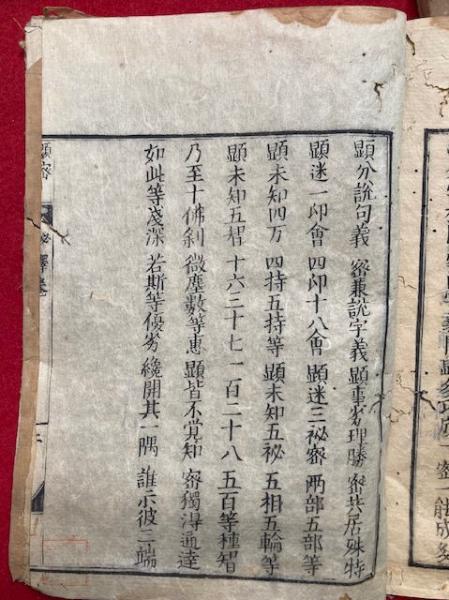 顕分説句義 密兼説字義 顕事劣理勝 密共居殊特
顕迷一印會 四印十八會 顕迷三祕密 両部五部等
顕未知四万 四持五持等 顕未知五祕 五相五輪等
顕未知五智 十六三十七 一百二十八 五百等種智
乃至十佛刹 微塵數等惠 顕皆不覚知 密獨得通達
如此等淺深 若斯等優劣 纔開其一隅 誰示彼三端
顕密
祕釋卷